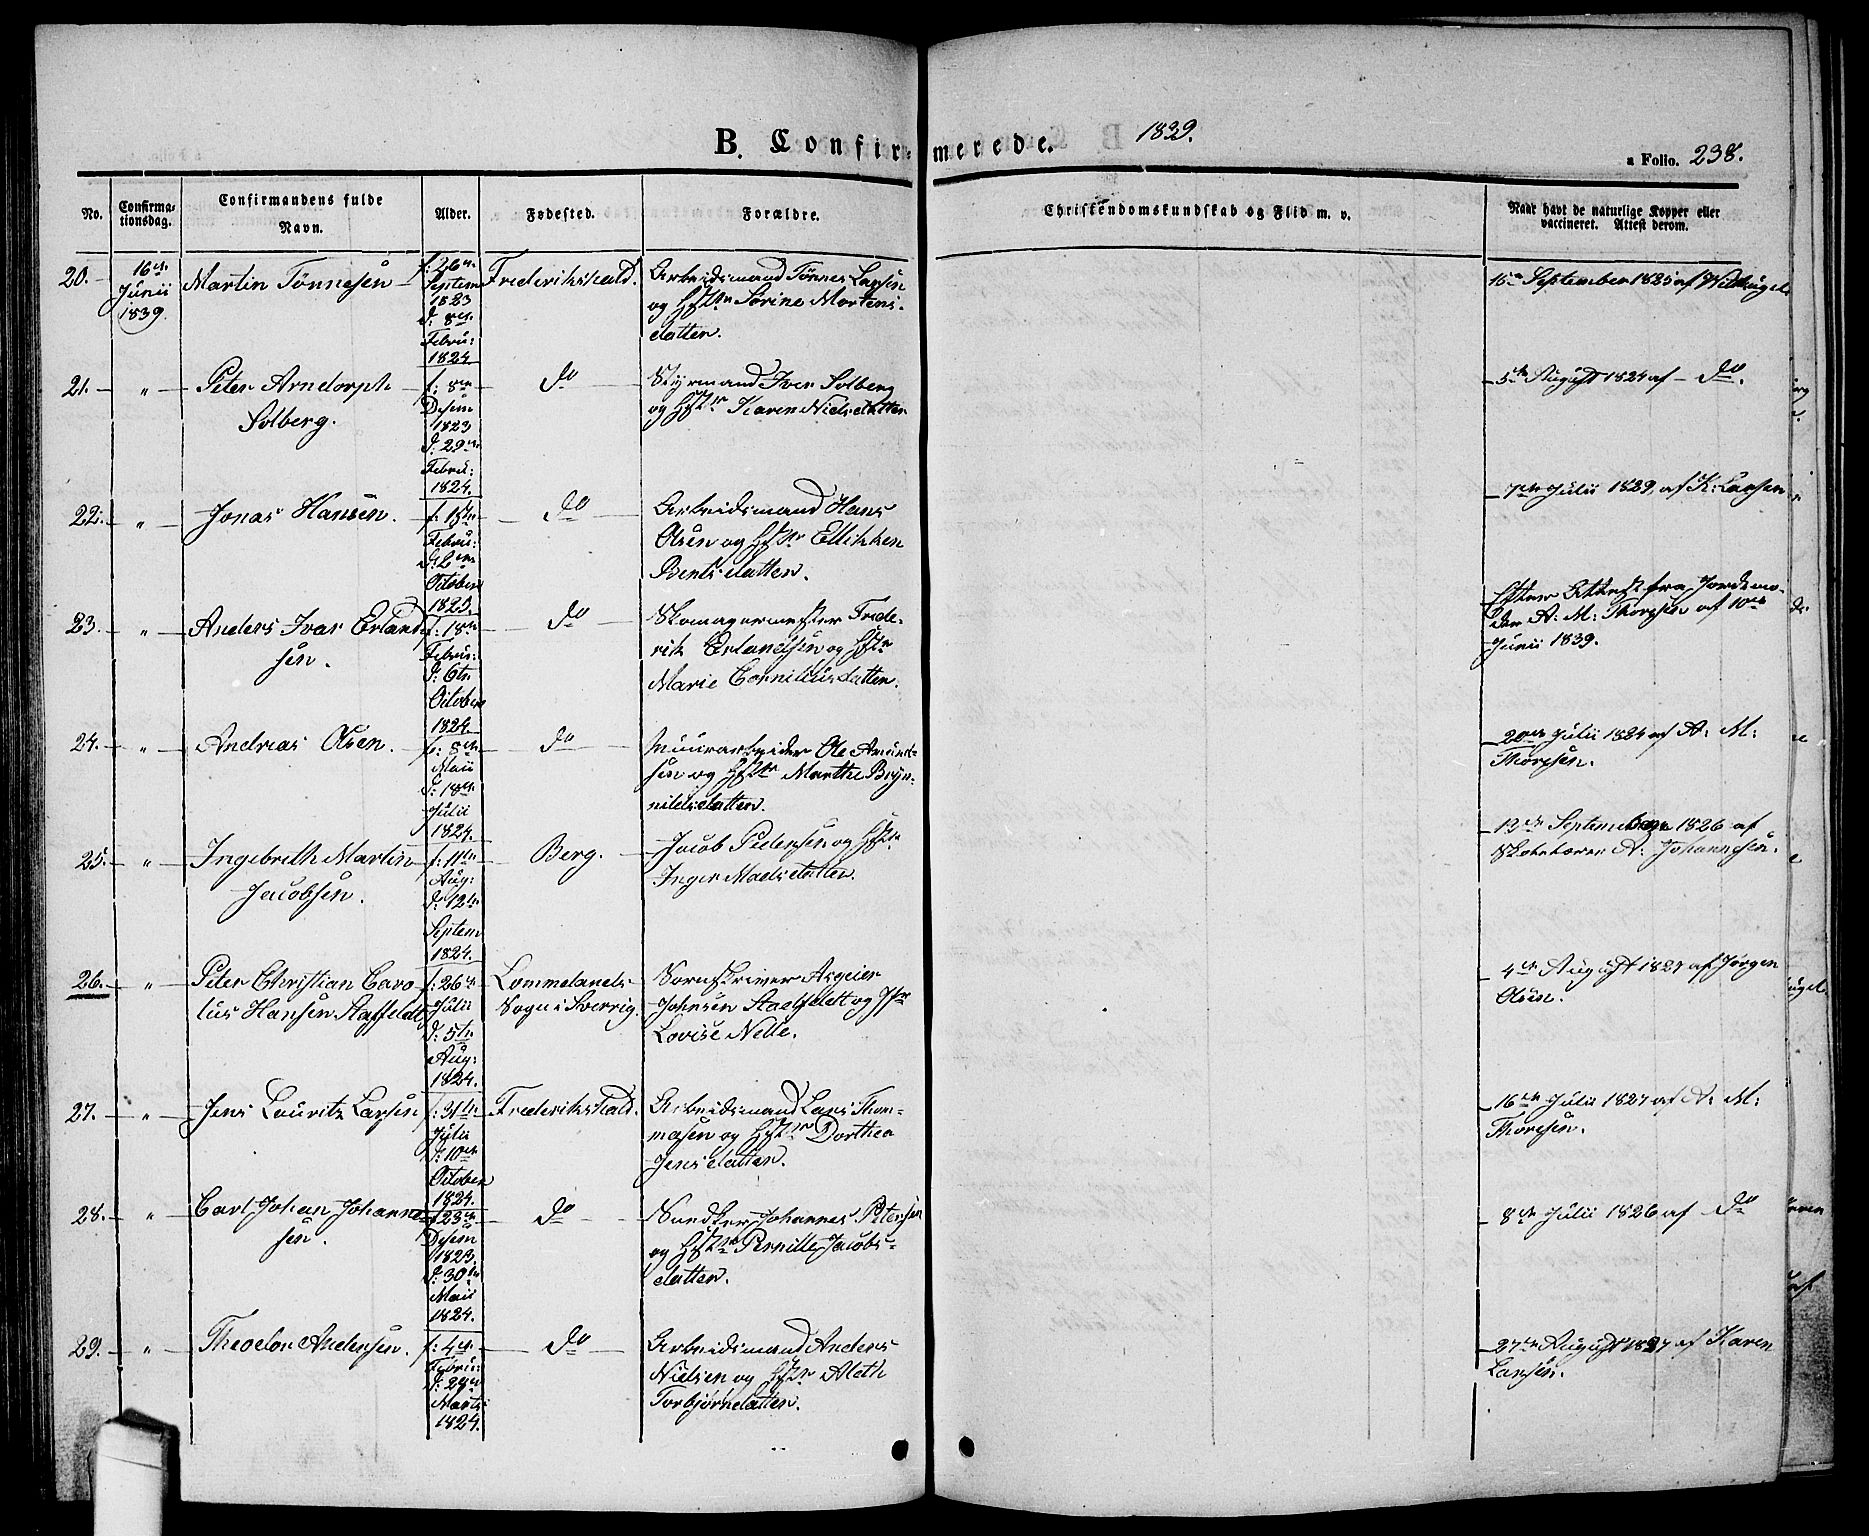 B. Confirmerede. 1839.
a Folio. 238.
No. Confirmationsdag. Confirmandens fulde Navn. Alder. Fødested. Forældre. Christendomskundskab og Flid m. v. Naar havt de naturlige Kopper eller vaccineret. Attest derom.
20. 16de Junii 1839. Martin Tønnesen f: 26de Septem 1823 d: 8de Febru: 1824. Frederikshald. Arbeidsmand Tønnes Larsen
og Hstr Sørine Mortens-
datter.
16de September 1825 af
21. " Peter Arndorph
Solberg.
f: 8de Desem 1823 d: 29de Febru: 1824. do
Styrmand Iver Solberg
og Hstr Karen Nielsdatter
5te August 1824 af do.
22. " Jonas Hansen. f: 15de Febru: d: 2den October 1823. do
Arbeidsmand Hans
Olsen og Hstr Ellikken
Bentsdatter.
7de Julii 1829 af K: Larsen
23. " Anders Ivar Erland-
sen.
f: 18de Febru: d: 6te October 1824. do
Skomagermester Frede-
rik Erlandsen og Hstr
Marie Corneliusdatter.
Efter Attest fra Jordemo-
der A: M: Thoresen af 10de
Junii 1839.
24. " Andreas Olsen. f: 8de Maii d: 18de Julii 1824. do
Muurarbeider Ole Amund-
sen og Hstr Marthe Bryn-
nildsdatter.
20de Julii 1824 af A: M:
Thoresen.
25. " Ingebreth Martin
Jacobsen.
f: 11te Aug: d: 12te Septem 1824. Berg.
Jacob Pedersen og Hstr
Inger Madsdatter.
13de September 1826 af
A: Johannesen.
26. " Peter Christian Caro-
lus Hansen Staffeldt
f: 26de Julii d: 5te Aug: 1824. Lommelands
Sogn i Sverrig.
Sorenskriver Asgeier
Johnsen Staffeldt og
Lovise Nelle.
4de August 1827 af Jørgen
Olsen.
27. " Jens Lauritz Larsen f: 31te Julii d: 10de October 1824. Frederikshald.
Arbeidsmand Lars Thom-
masen og Hstr Dorthea
Jensdatter.
16de Julii 1827 af A: M:
Thoresen.
28. " Carl Johan Johanne-
sen.
f: 23de Desem 1823. d: 30te Maii 1824. do
Johannes Petersen
og Hstr Pernille Jacobs-
datter.
8de Julii 1826 af do
29. " Theodor Andersen. f: 4de Febru: d: 28de Marts 1824. do
Arbeidsmand Anders
Nielsen og Hstr Aleth
Torbjørnsdatter.
27de August 1827 af Karen
Larsen.